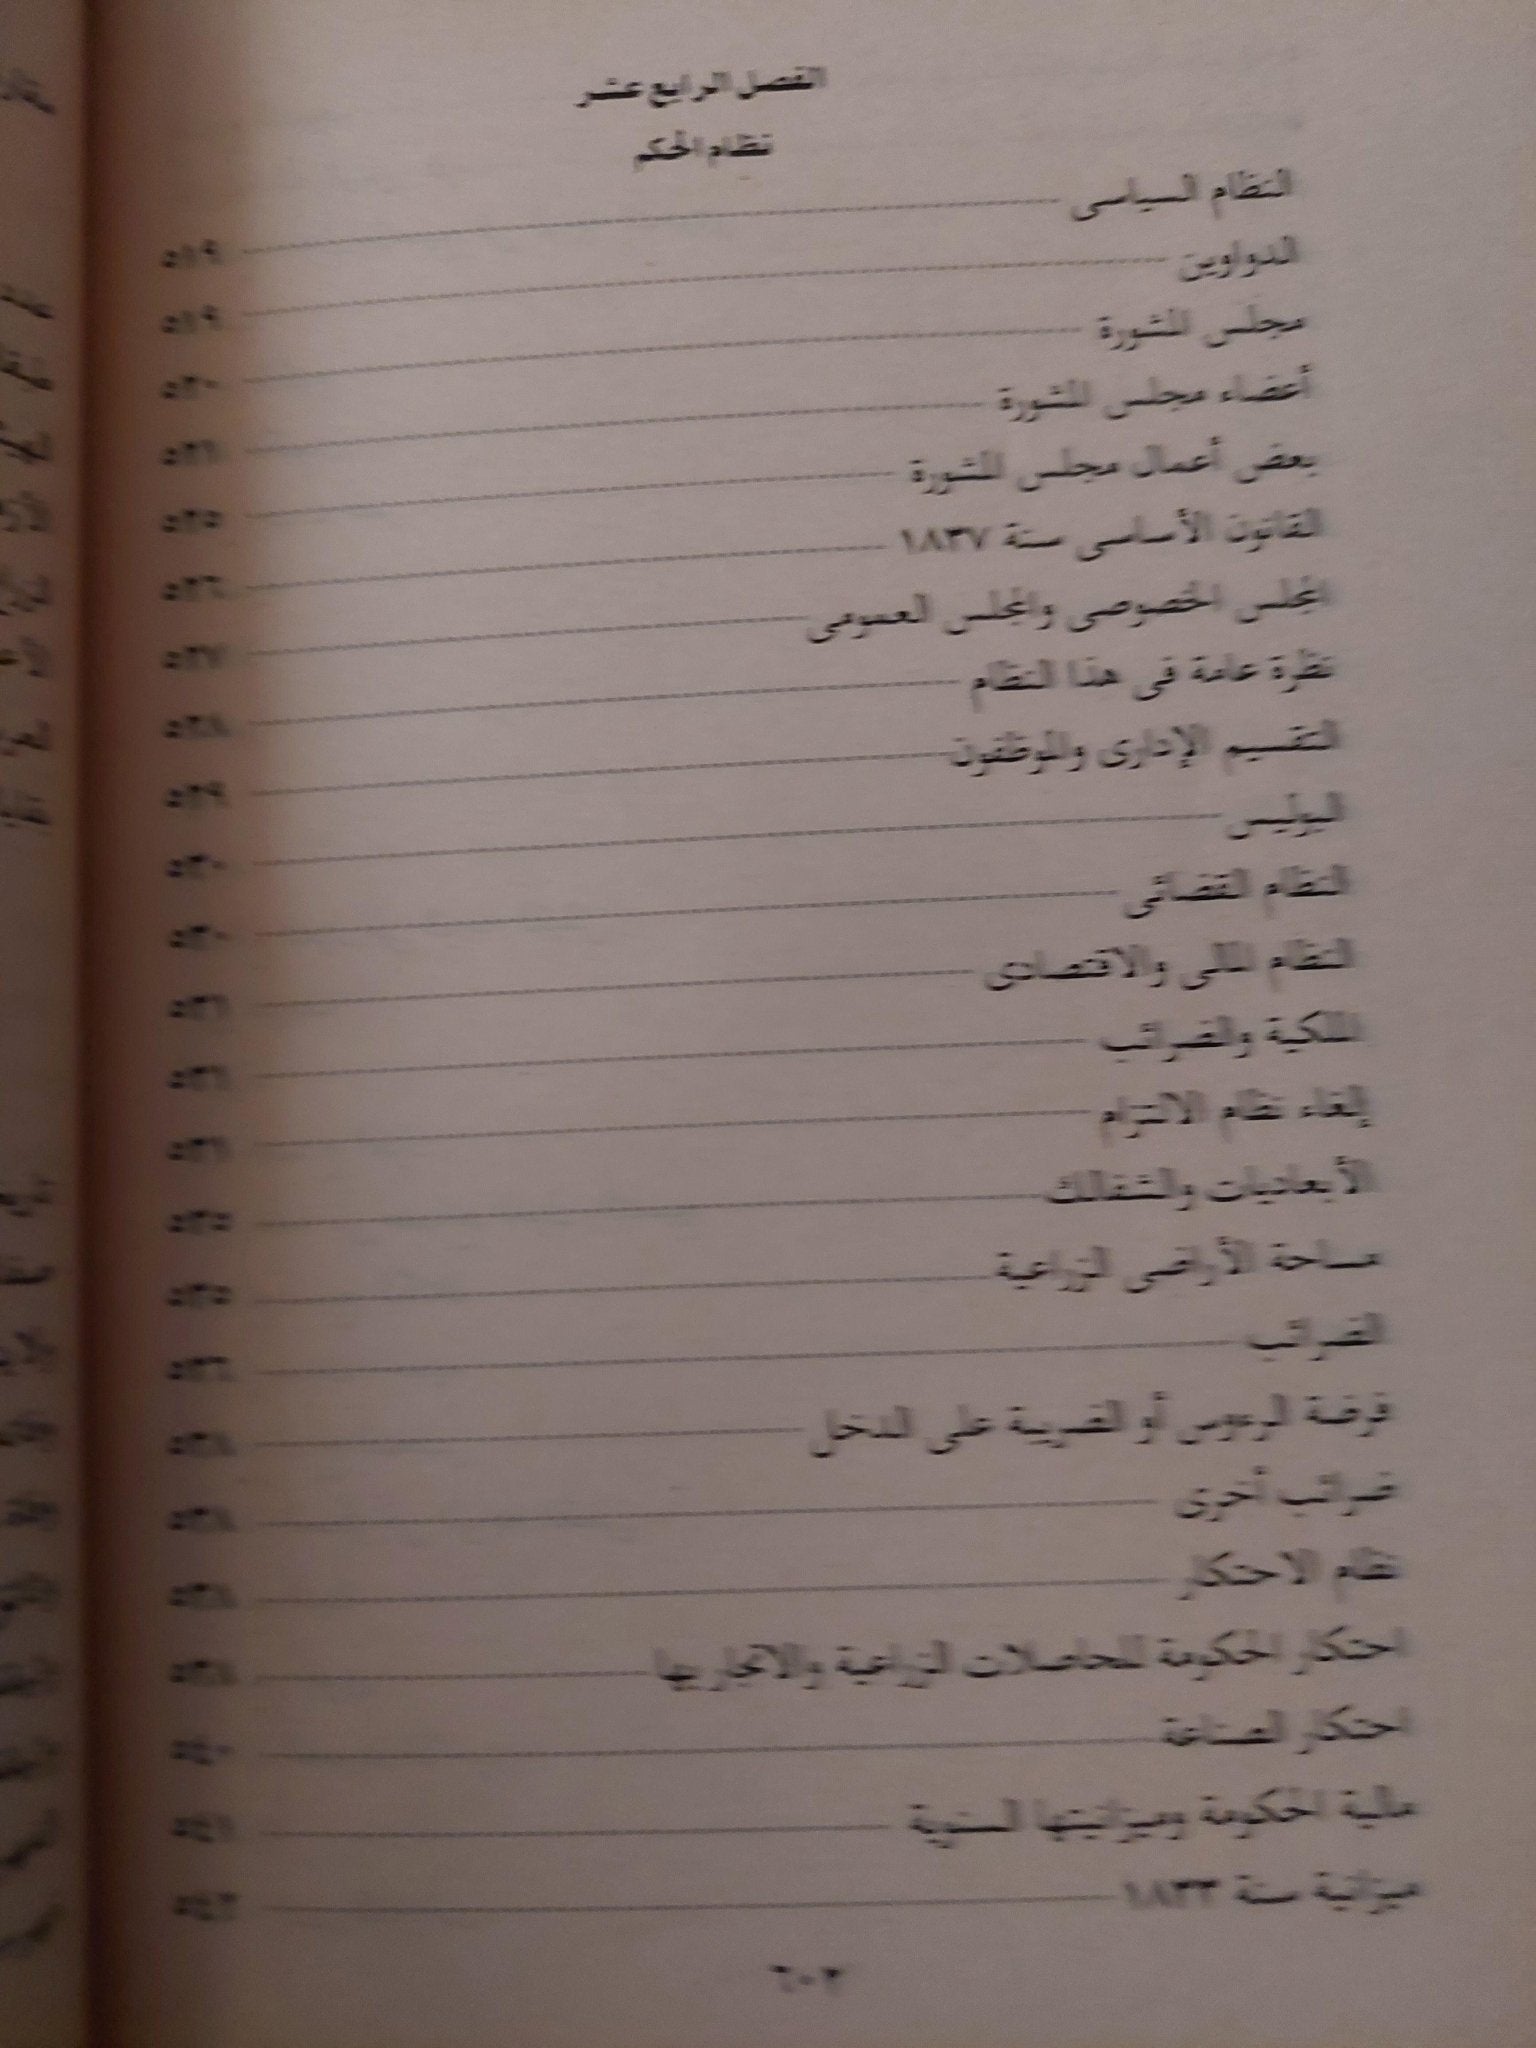 الفصل الرابع عشر
نظام الحكم
النظام السياسى ٥١٩
الدواوين ٥١٩
مجلس المشورة ٥٢٠
أعضاء مجلس المشورة ٥٢١
بعض أعمال مجلس المشورة ٥٢٥
القانون الأساسى سنة ١٨٣٧ ٥٢٦
المجلس الخصوصى والمجلس العمومى ٥٢٧
نظرة عامة فى هذا النظام ٥٢٨
التقسيم الإدارى والموظفون ٥٢٩
البوليس ٥٣٠
النظام القضائى ٥٣٠
النظام المالى والاقتصادى ٥٣١
الملكية والضرائب ٥٣١
إلغاء نظام الالتزام ٥٣١
الأبعاديات والشفالك ٥٣٥
مساحة الأراضى الزراعية ٥٣٥
الضرائب ٥٣٦
فرضة الرءوس أو الضريبة على الدخل ٥٣٨
ضرائب أخرى ٥٣٨
نظام الاحتكار ٥٣٨
احتكار الحكومة للحاصلات الزراعية والاتجار بها ٥٣٨
احتكار الصناعة ٥٤٠
مالية الحكومة وميزانيتها السنوية ٥٤١
ميزانية سنة ١٨٣٣ ٥٤٢
٦٠٢